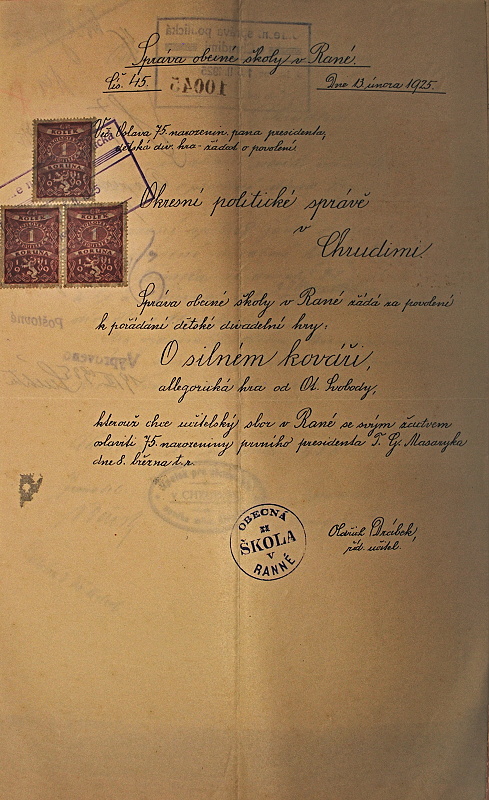 Správa obecné školy v Rané.
Čís. 45.
Dne 13. února 1925.
Věc: Oslava 75. narozenin pana presidenta,
dětská div. hra - žádost o povolení.
KOLEK
1
KORUNA
KOLEK
1
KORUNA
KOLEK
1
KORUNA
Okresní politické správě
v
Chrudimi.
Správa obecné školy v Rané žádá za povolení
k pořádání dětské divadelní hry:
O silném kováři,
allegorická hra od Ot. Svobody,
kterouž chce učitelský sbor v Rané se svým žactvem
oslaviti 75. narozeniny prvního presidenta T. G. Masaryka
dne 8. března t. r.
OBECNÁ
ŠKOLA
V
RANNÉ
Oldřich Drábek,
říd. učitel.
10045
Poštovné
Vypraveno